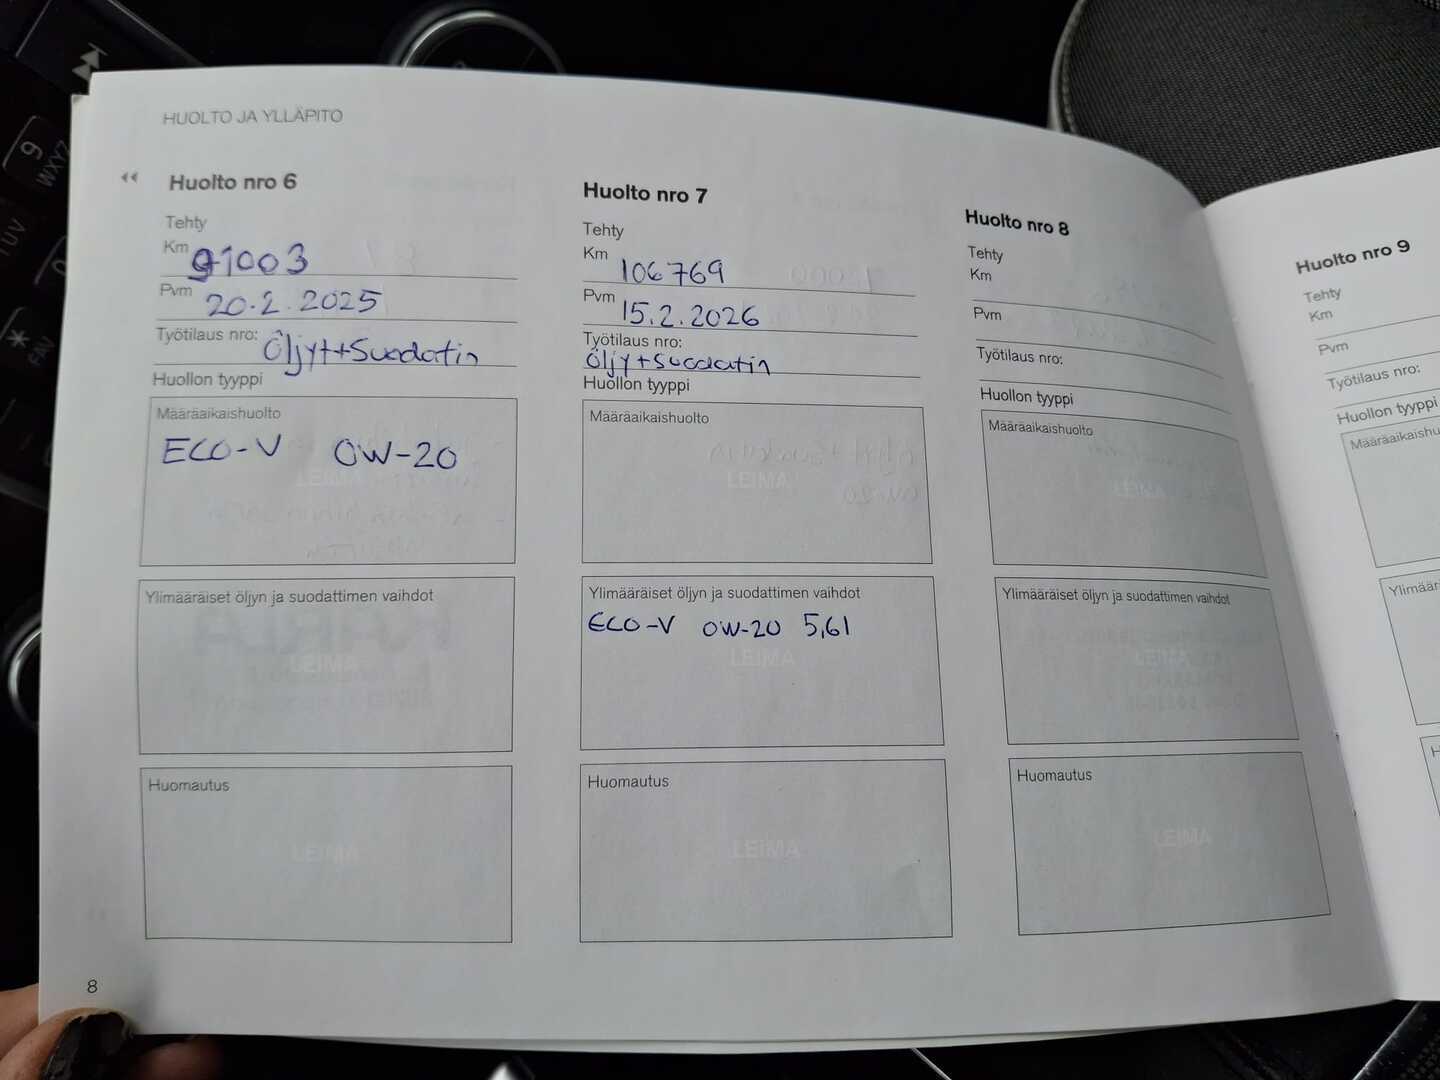 HUOLTO JA YLLÄPITO
Huolto nro 6
Tehty
Km 91003
Pvm 20.2.2025
Työtilaus nro: Öljyt+Suodatin
Huollon tyyppi
Määräaikaishuolto
ECO-V 0W-20
LEIMA
Ylimääräiset öljyn ja suodattimen vaihdot
LEIMA
Huomautus
LEIMA
Huolto nro 7
Tehty
Km 106769
Pvm 15.2.2026
Työtilaus nro:
Öljyt+suodatin
Huollon tyyppi
Määräaikaishuolto
LEIMA
Ylimääräiset öljyn ja suodattimen vaihdot
ECO-V 0W-20 5,6l
LEIMA
Huomautus
LEIMA
Huolto nro 8
Tehty
Km
Pvm
Työtilaus nro:
Huollon tyyppi
Määräaikaishuolto
LEIMA
Ylimääräiset öljyn ja suodattimen vaihdot
LEIMA
Huomautus
LEIMA
Huolto nro 9
Tehty
Km
Pvm
Työtilaus nro:
Huollon tyyppi
8
9
WXYZ
TUV
FAV